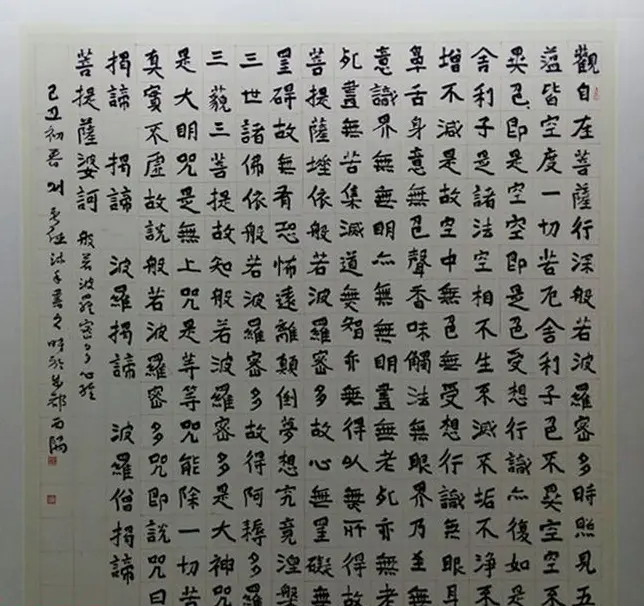 觀自在菩薩行深般若波羅密多時照見五
蕴皆空度一切苦厄舍利子色不異空空不
異色即是空空即是色受想行識亦復如是
舍利子是諸法空相不生不滅不垢不淨不
增不減是故空中無色無受想行識無眼耳
鼻舌身意無色聲香味觸法無眼界乃至無
意識界無無明亦無無明盡無老死亦無老
死盡無苦集滅道無智亦無得以無所得故
菩提薩埵依般若波羅密多故心無罣礙無
罣碍故無有恐怖遠離顛倒夢想究竟涅槃
三世諸佛依般若波羅密多故得阿耨多羅
三藐三菩提故知般若波羅密多是大神咒
是大明咒是無上咒是等等咒能除一切苦
真實不虛故說般若波羅密多咒即說咒曰
揭諦 揭諦 波羅揭諦 波羅僧揭諦
菩提薩婆訶 般若波羅密多心經
己丑初春 沐手書之時於成都西隅